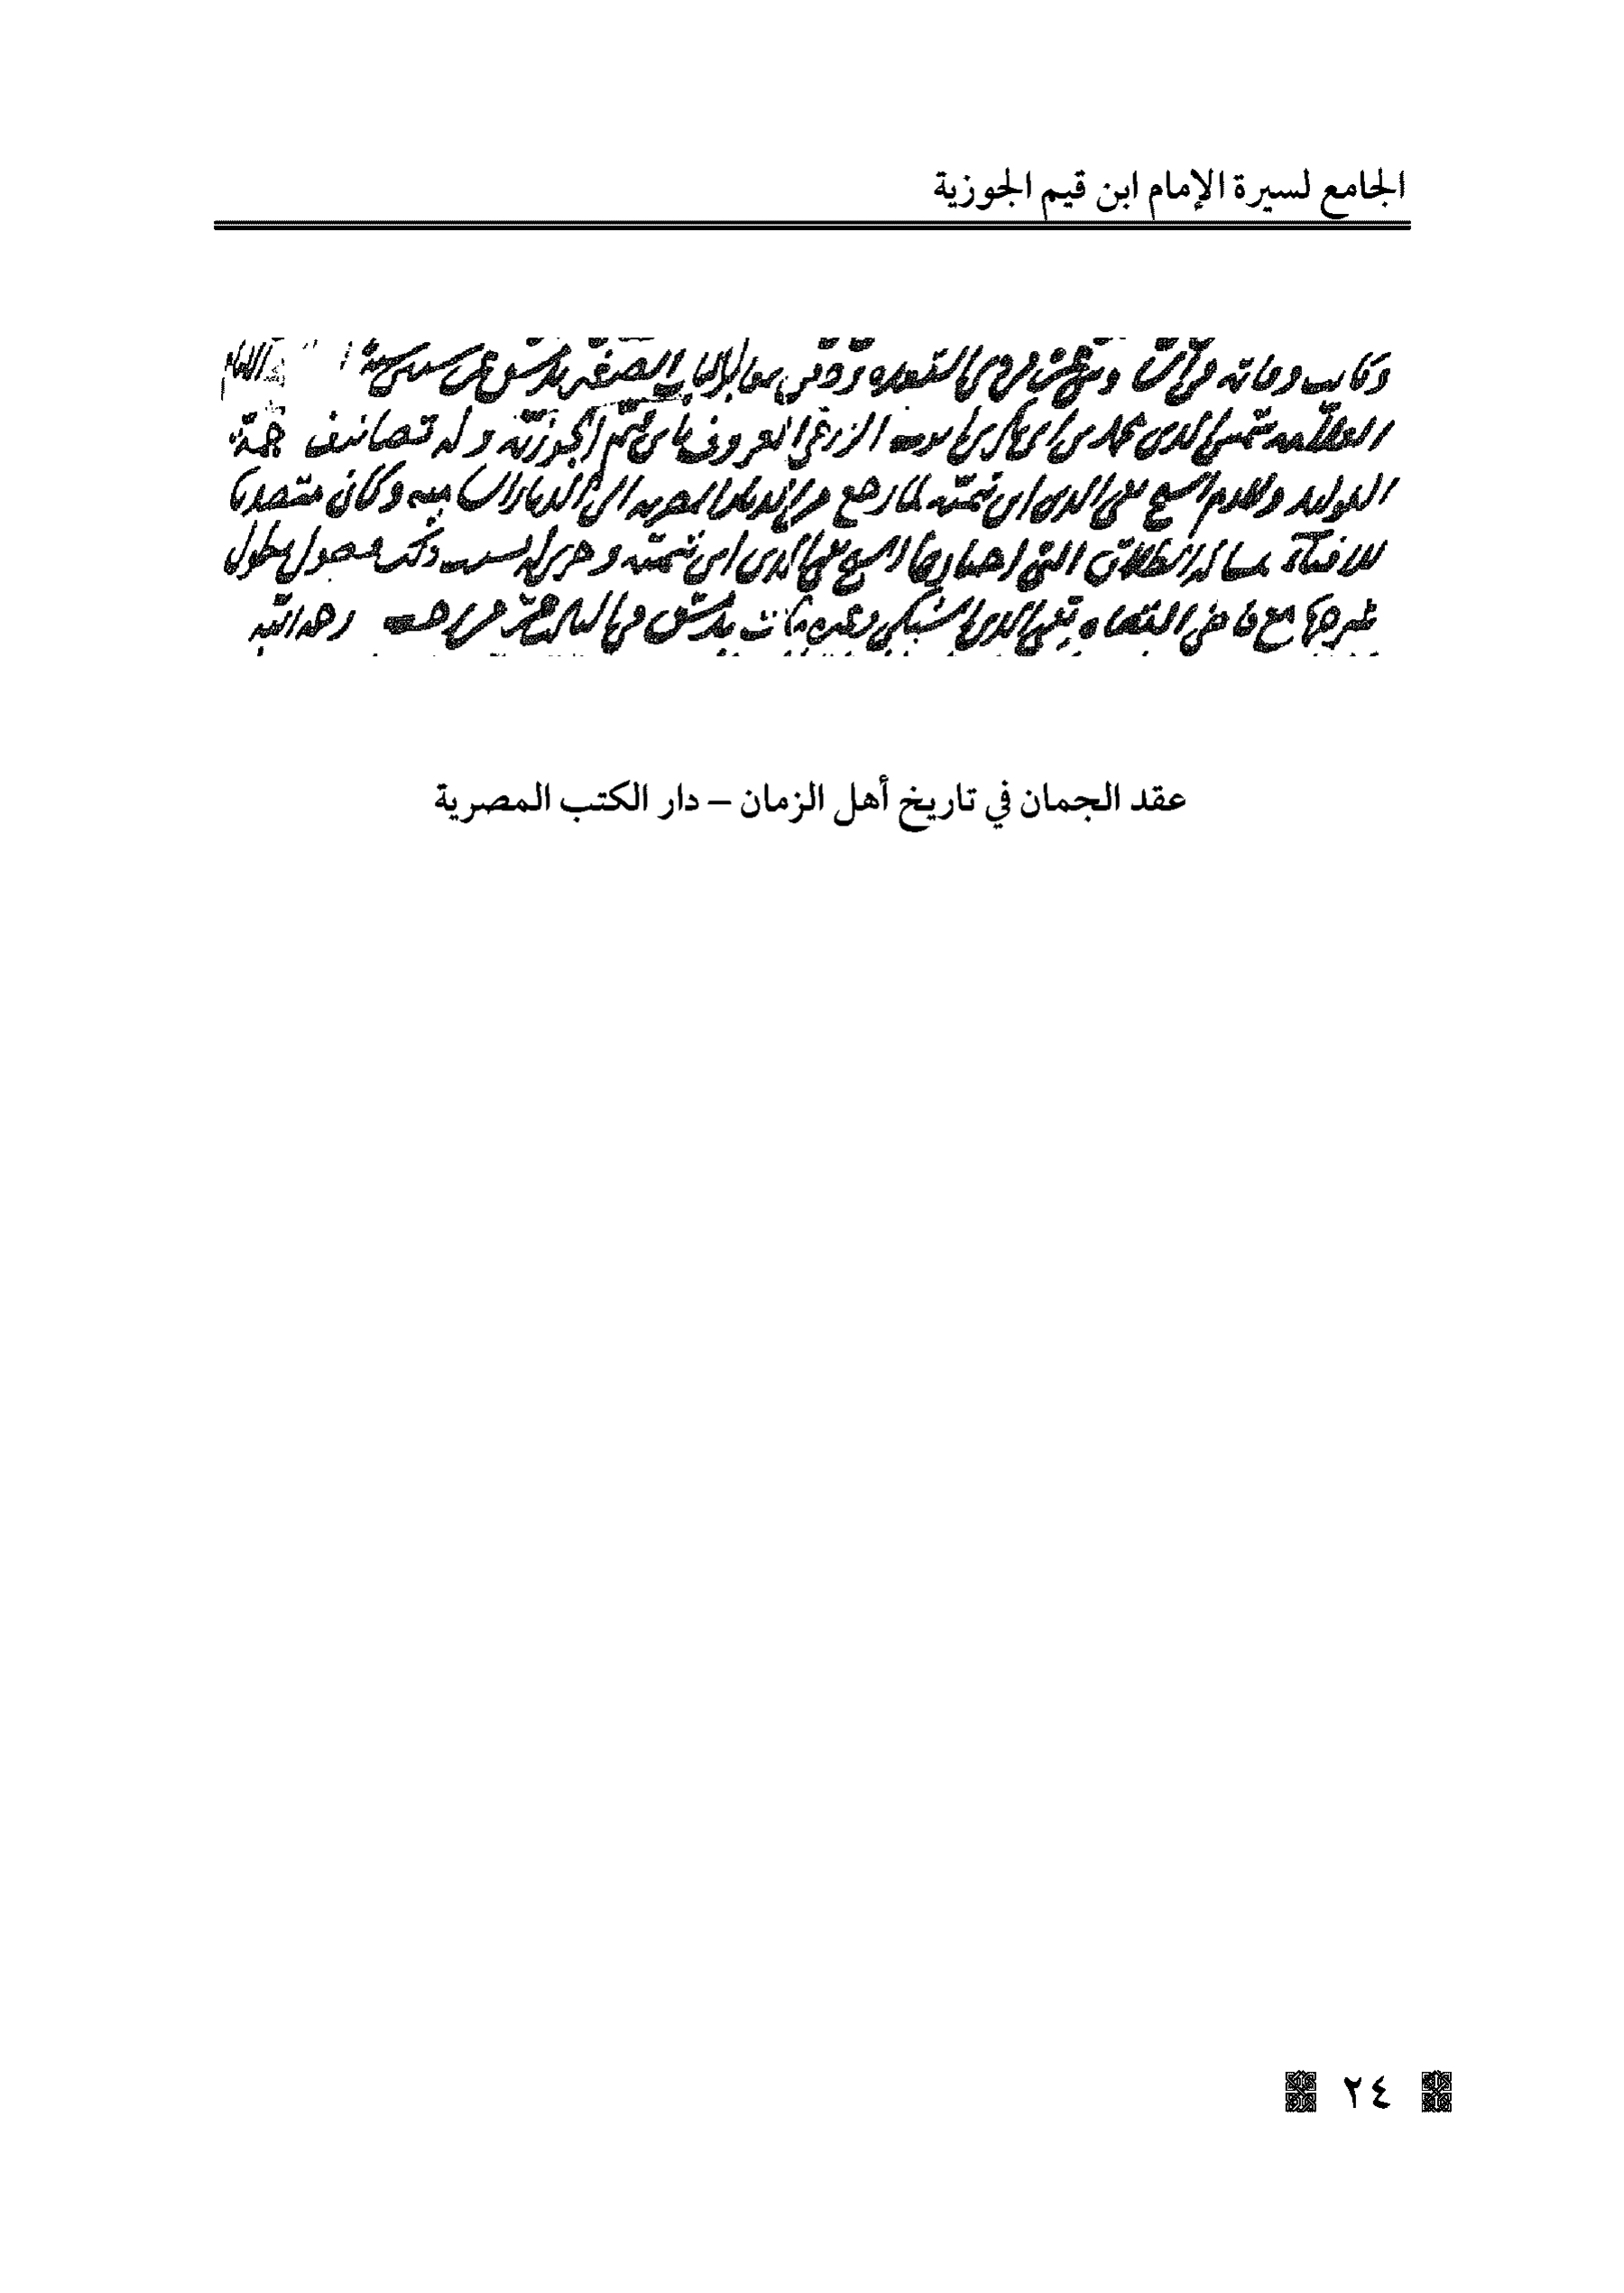 الجامع لسيرة الإمام ابن قيم الجوزية
وكانت وفاته في ثالث وعشرين من ذي القعدة ودفن بمقابر الباب الصغير بدمشق عن ستين سنة الامام
العلامه شمس الدين محمد بن ابي بكر بن ايوب الزرعي المعروف بابن قيم الجوزية وله تصانيف جمة
الفوايد ولازم الشيخ تقي الدين ابن تيمية لما رجع من الديار المصريه الى الديار الشاميه وكان متصديا
للافتاء بمسالة الطلاق التي اختارها الشيخ تقي الدين ابن تيمية وجرى له بسبب ذلك فصول يطول
شرحها مع قاضي القضاه تقي الدين السبكي وغيره مات بدمشق في ثالث عشر رجب رحمه الله
عقد الجمان في تاريخ أهل الزمان – دار الكتب المصرية
٢٤